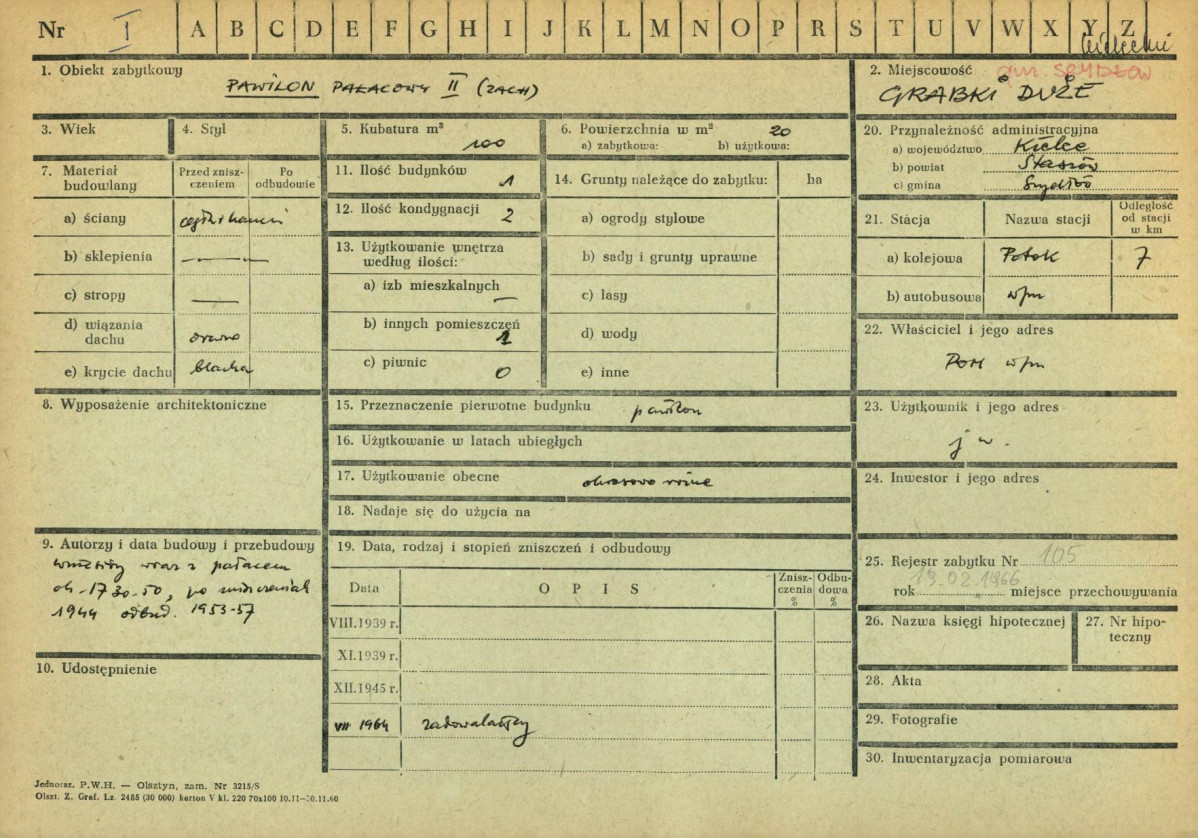 Nr I A B C D E F G H I J K L M N O P R S T U V W X Y Z
kielecki
1. Obiekt zabytkowy
PAWILON PAŁACOWY II (ZACH)
2. Miejscowość gm. SZYDŁÓW
GRABKI DUŻE
3. Wiek
4. Styl
5. Kubatura m³
100
6. Powierzchnia w m² 20
a) zabytkowa: b) użytkowa:
20. Przynależność administracyjna
a) województwo Kielce
b) powiat Staszów
c) gmina Szydłów
7. Materiał budowlany
Przed zniszczeniem
Po odbudowie
a) ściany
b) sklepienia —
c) stropy —
d) wiązania dachu drewno
e) krycie dachu blacha
11. Ilość budynków 1
12. Ilość kondygnacji 2
13. Użytkowanie wnętrza
według ilości:
a) izb mieszkalnych —
b) innych pomieszczeń
1
c) piwnic 0
14. Grunty należące do zabytku: ha
a) ogrody stylowe
b) sady i grunty uprawne
c) lasy
d) wody
e) inne
21. Stacja
Nazwa stacji
Odległość
od stacji
w km
a) kolejowa Potok 7
b) autobusowa w/m
22. Właściciel i jego adres
POM w/m
8. Wyposażenie architektoniczne
15. Przeznaczenie pierwotne budynku pawilon
16. Użytkowanie w latach ubiegłych
17. Użytkowanie obecne okresowo różne
18. Nadaje się do użycia na
23. Użytkownik i jego adres
j w.
24. Inwestor i jego adres
9. Autorzy i data budowy i przebudowy
wzniesiony wraz z pałacem
ok. 1730-50, po zniszczeniach
1944 odbud. 1953-57
10. Udostępnienie
19. Data, rodzaj i stopień zniszczeń i odbudowy
Data
O P I S
Zniszczenia
%
Odbudowa
%
VIII.1939 r.
XI.1939 r.
XII.1945 r.
VII 1964 zadowalający
25. Rejestr zabytku Nr 105
19.02.1966
rok miejsce przechowywania
26. Nazwa księgi hipotecznej
27. Nr hipoteczny
28. Akta
29. Fotografie
30. Inwentaryzacja pomiarowa
Jednoraz. P.W.H. — Olsztyn, zam. Nr 3215/S
Olszt. Z. Graf. Lz. 2485 (30 000) karton V kl. 220 70x100 10.11—30.11.60